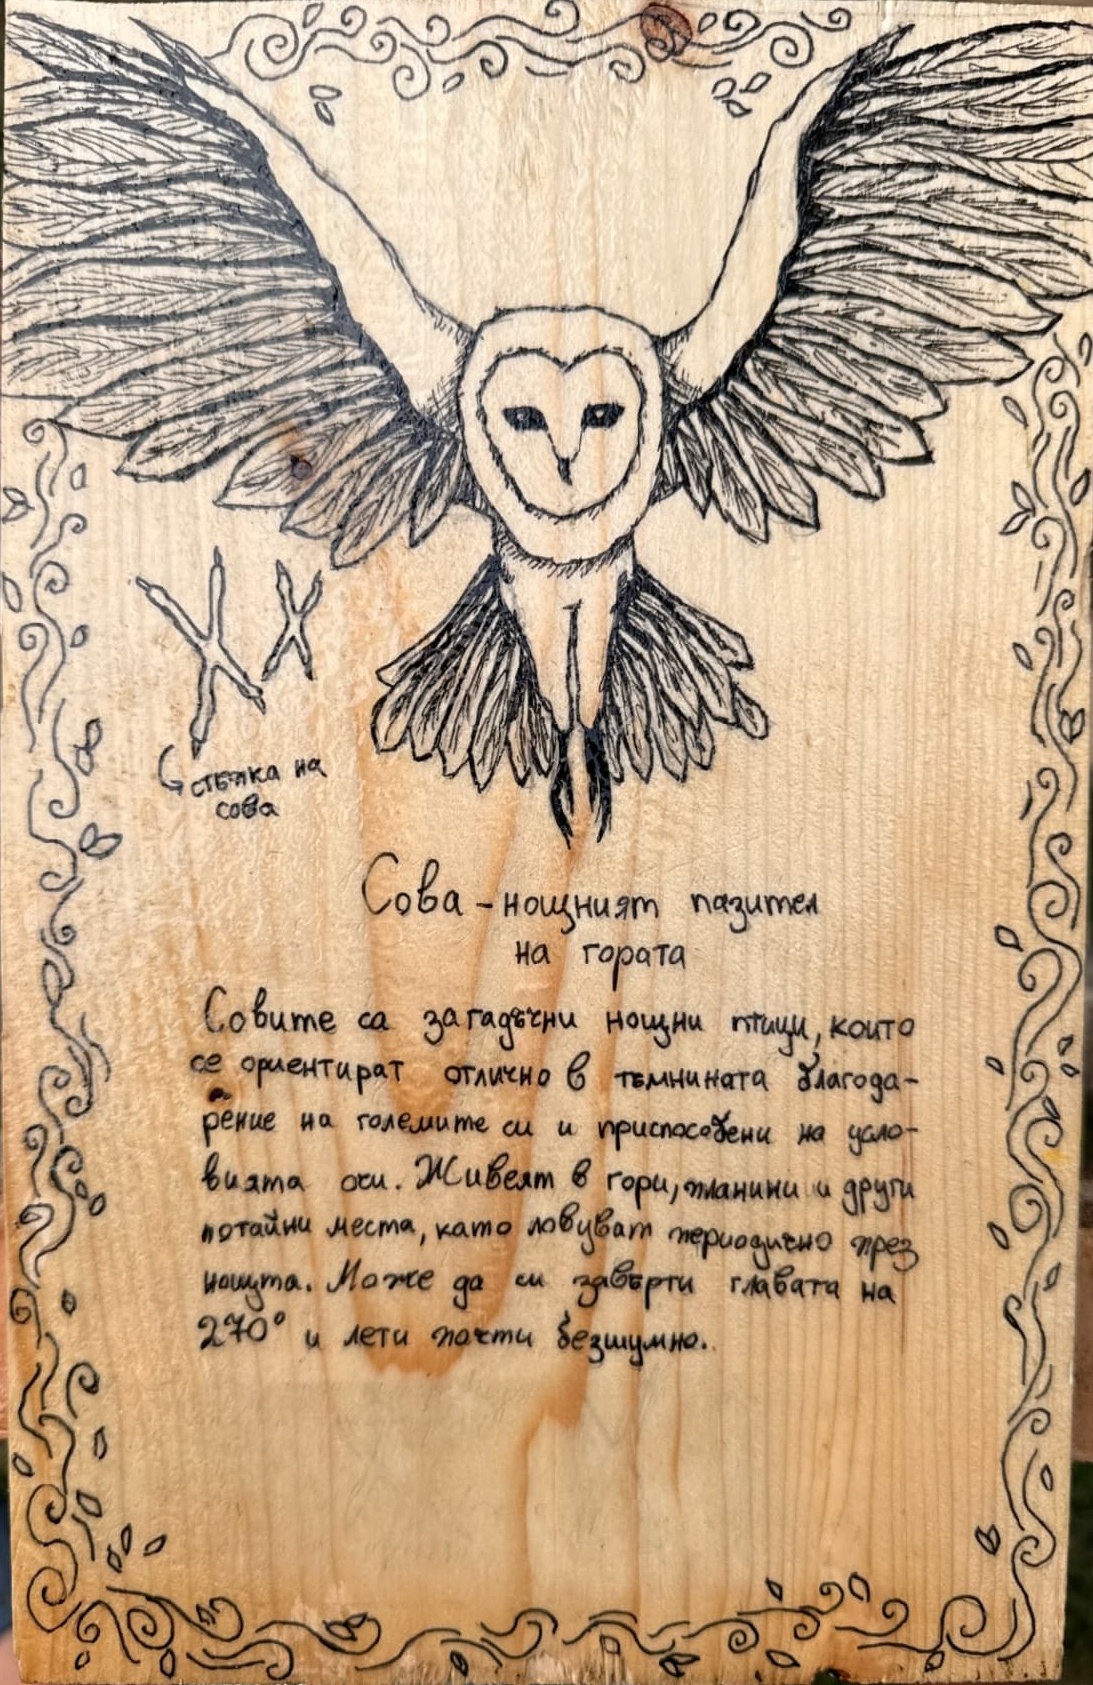 стъпка на
сова
Сова - нощният пазител
на гората
Совите са загадъчни нощни птици, които
се ориентират отлично в тъмнината благода-
рение на големите си и приспособени на усло-
вията очи. Живеят в гори, планини и други
потайни места, като ловуват периодично през
нощта. Може да си завърти главата на
270° и лети почти безшумно.